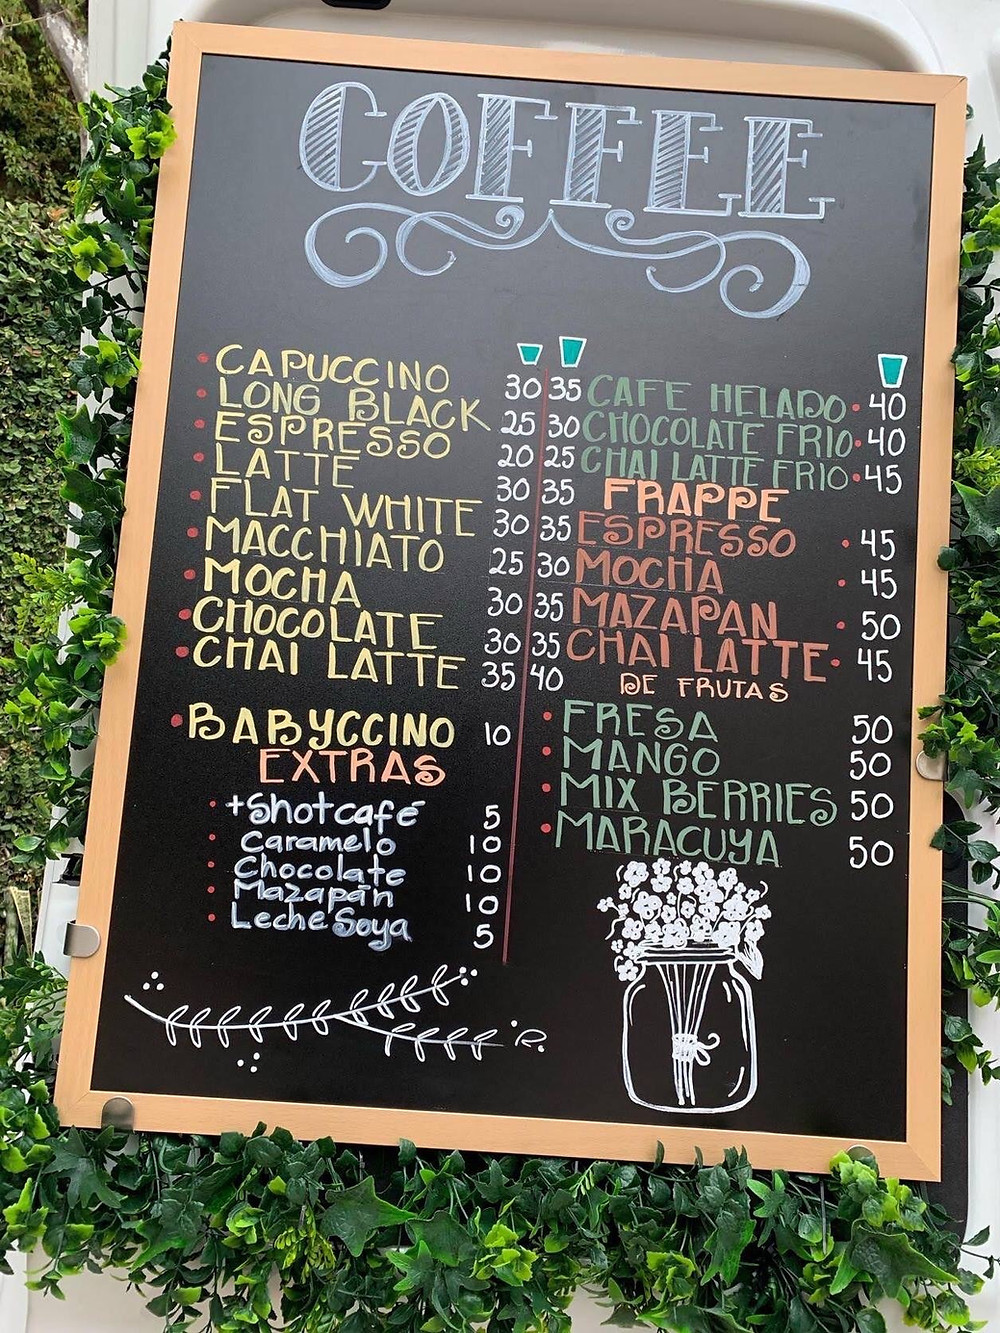 COFFEE
CAPUCCINO 30 35
LONG BLACK 25 30
ESPRESSO 20 25
LATTE 30 35
FLAT WHITE 30 35
MACCHIATO 25 30
MOCHA 30 35
CHOCOLATE 30 35
CHAI LATTE 35 40
BABYCCINO 10
EXTRAS
+Shot café 5
Caramelo 10
Chocolate 10
Mazapán 10
Leche Soya 5
R.
CAFE HELADO 40
CHOCOLATE FRIO 40
CHAI LATTE FRIO 45
FRAPPE
ESPRESSO 45
MOCHA 45
MAZAPAN 50
CHAI LATTE 45
DE FRUTAS
FRESA 50
MANGO 50
MIX BERRIES 50
MARACUYA 50